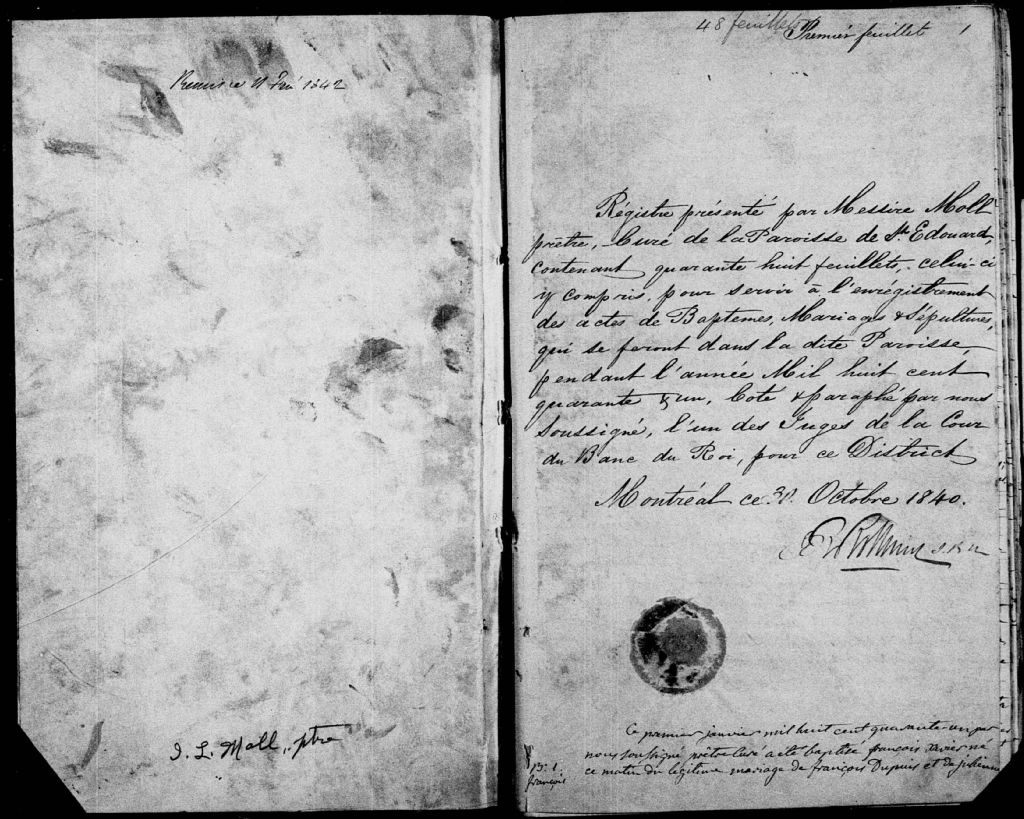 Remis ce 11 Fev 1842
J. L. Moll, ptre
48 feuillets
Premier feuillet 1
Régistre présenté par Messire Moll
prêtre, Curé de la Paroisse de St. Edouard,
contenant quarante huit feuillets, celui-ci
y compris, pour servir à l'enrégistrement
des actes de Baptemes, Mariages & Sépultures,
qui se feront dans la dite Paroisse
pendant l'année Mil huit cent
quarante & un, Coté & paraphé par nous
Soussigné, l'un des Juges de la Cour
du Banc du Roi, pour ce District
Montréal ce Octobre 1840.
B. 1.
françois
Ce premier janvier mil huit cent quarante-un par
nous soussigné prêtre curé a été baptisé françois xavier né
ce matin du légitime mariage de françois Dupuis et de